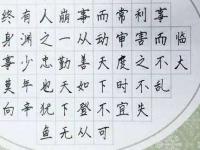 终有人崩事而常利事
身渊之一从动审害而临
事少忠勤善天度之不大
莫年地天如下时不乱
向辛犹下登不宜失
鱼无从可